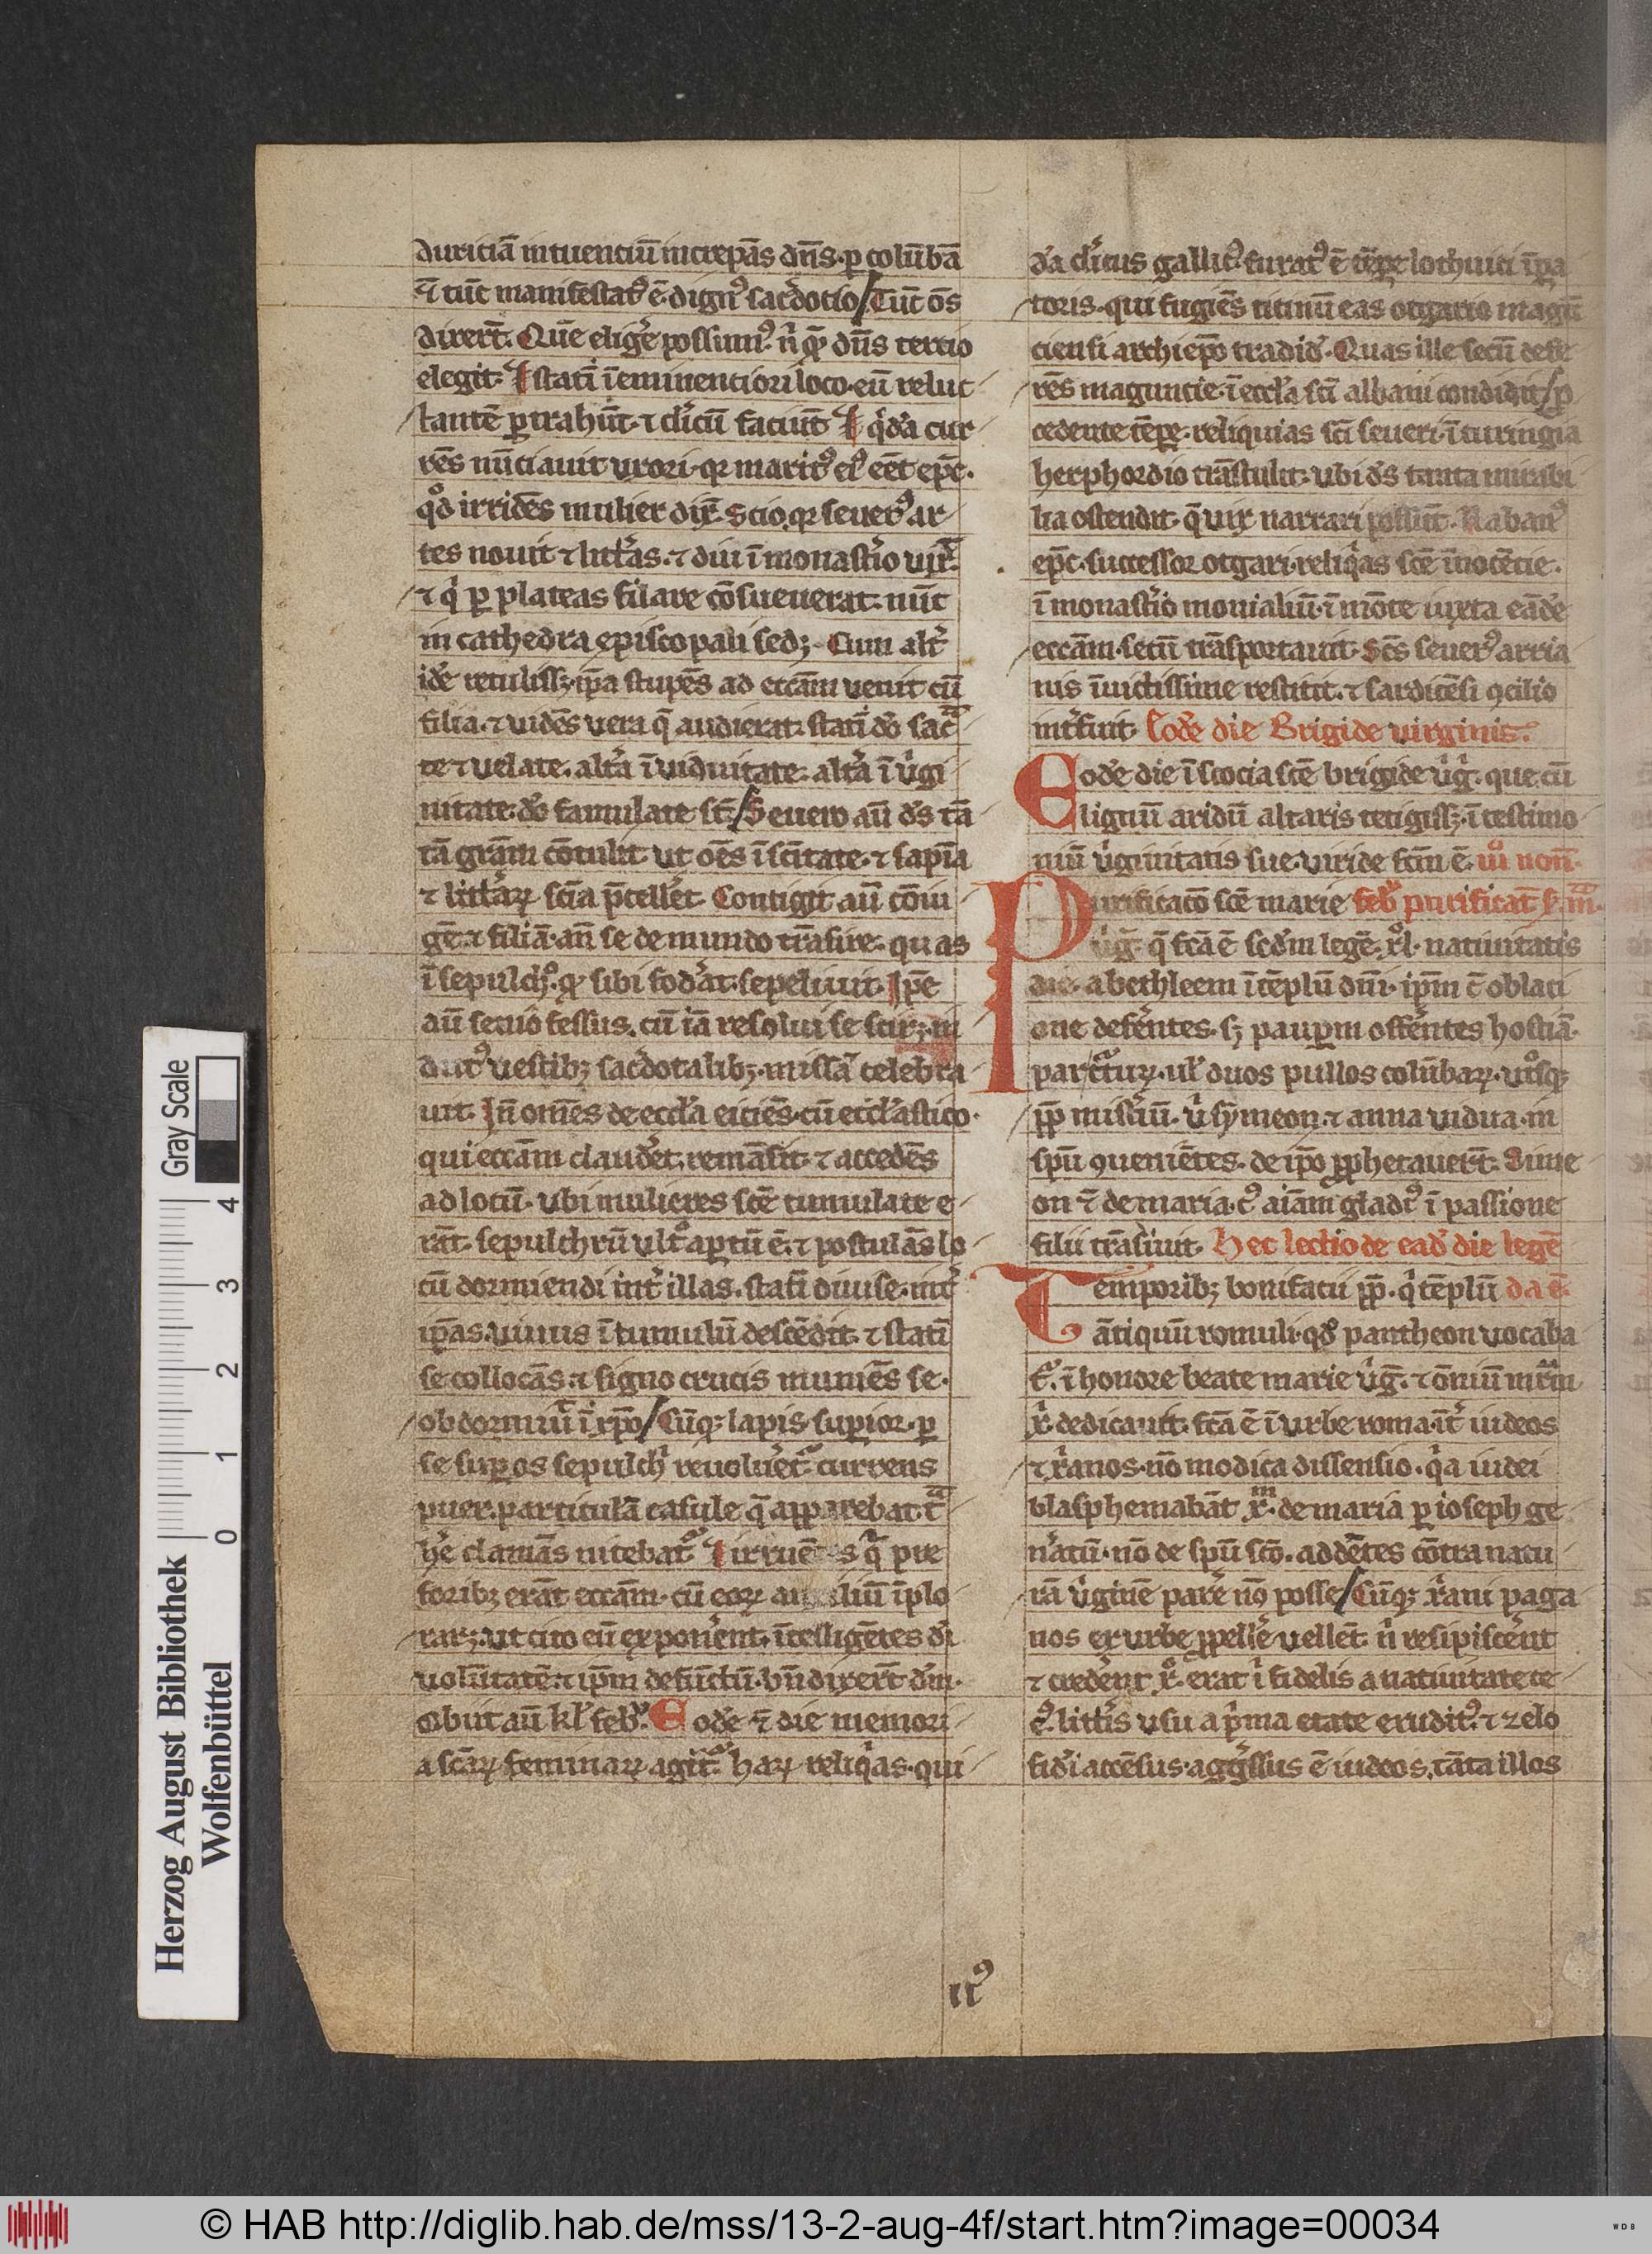 duriciā intuenciū increpās dn̄s ꝑ colūbā
⁊̄ tūc manifestatꝰ ē dignꝰ sacˀdotio Tūc ōs
dixert̄ Quē eligˀe possumꝰ nˡ qē dn̄s tercio
elegit statī ī eminenciori loco eū reluc
tantē ꝑtrahūt ⁊ clˀicū faciūt qˡdā cur
rēs nūciauit uxori qꝛ maritꝰ eiꝰ eēt epc̄
qͦd irridēs mulier dix̄ Scio qꝛ seuerꝰ ar
tes nouit ⁊ littˀas ⁊ diu ī monastˀio uix̄
⁊ qˡ ꝑ plateas filare cōsueuerat nūc
in cathedra episcopali sedꝫ Cum altˀ
idē retulissꝫ ip̄a stupēs ad eccām uenit cū
filia ⁊ uidēs uera q̄ audierat statī dō sacͣ
te ⁊ uelate altˀa ī uiduitate altˀa ī uˡgi
nitate dō famulate st̄ Seuero aū ds̄ tā
tā grām cōtulit ut oēs ī scītate ⁊ sapīa
⁊ littˀaꝝ scīa p̄cellˀet Contigit aū cōiu
gē ⁊ filiā an̄ se de mundo trāsire quas
ī sepulchͦ qͦ sibi fodˀat sepeliuit Ip̄e
aū senio fessus cū iā resolui se scirꝫ in
dutꝰ uestibꝫ sacˀdotalibꝫ missā celebra
uit In̄ omēs de ecclˀa eiciēs cū ecclˀastico
qui eccām claudˀet remāsit ⁊ accedēs
ad locū ubi mulieres scē tumulate e
rāt sepulchrū ultͦ aꝑtū ē ⁊ postulās lo
cū dormiendi intˀ illas statī diuise intˀ
ip̄as uiuus ī tumulū descēdit ⁊ statī
se collocās ⁊ signo crucis muniēs se
obdormiuīt ī xp̄o Cūqꝫ lapis suꝑior ꝑ
se suꝑ os sepulchˡ reuoluˀetͬ currens
puer particulā casule q̄ apparebat tͣ
hˀe clamās nitebatͬ irruētes qˡ pre
foribꝫ erāt eccām cū eoꝝ auxiliū īplo
rarꝫ ut cito eū exponˀent ītelligētes dī
uolūtatē ⁊ ip̄m defūctū bn̄dixert̄ dn̄m
Obiit aū kl̄ febͬ Eodē ⁊̄ die memori
a scāꝝ feminaꝝ agitͬ haꝝ reliqˡas qui
dā clˀicus gallicꝰ furatꝰ ē tēꝑe lothuici īꝑa
toris qui fugiēs ticinū eas otgario magū
ciensi archiepō tradidˀ Quas ille secū defe
rēs maguncie ī ecclˀa scī albani condidit p̄
cedente tēꝑe reliquias scī seueri ī turingia
herphordio trāstulit ubi ds̄ tanta mirabi
lia ostendit q̄ uix narrari possūt Rabanꝰ
epc̄ successor otgari reliqˡas scē īnocēcie
ī monastˀio monialiū ī mōte iuxta eādē
eccām secū trāsportauit Scs̄ seuerꝰ arria
nis īuictissime restitit ⁊ sardicēsi ꝯcilio
intˀfuit Eodē die Brigide uirginis
Eodē die ī scocia scē brigide uˡgˡ que cū
lignū aridū altaris tetigissꝫ ī testimo
niū uˡginitatis sue uiride fcm̄ ē iiiiͦ non̄
Purificacō scē marie febͬ purificat̄ s m̄
uˡg̅ q̄ fcā ē scdm̄ legē xͦl natiuitatis
die a bethleem ī tēplū dn̄i ip̄m c̄ oblati
one defˀentes sꝫ pauꝑm offˀentes hostiā
par turtuꝝ ul̄ duos pullos colūbaꝝ utͦsqꝫ
ꝓp̄ misˀiū uˡ symeon ⁊ anna uidua in
spū ꝯueniētes de ip̄o ꝓphetauert̄ Sime
on ⁊̄ de maria cꝰ aiām gladiꝰ ī passione
filii trāsiuit Hec lectio de eadˀ die legē
Temporibꝫ bonifacii pp̄ qˡ tēplū da ē
ātiquū romuli qd̄ pantheon uocaba
tͬ ī honore beate marie uˡg̅ ⁊ ōniū mr̄m
xˡ dedicauit fcā ē ī urbe roma īt̄ iudeos
⁊ xˡanos nō modica dissensio qˡa iudei
blasphemabāt xm̄ de maria ꝑ ioseph ge
nˀatū nō de spū scō addētes cōtra natu
rā uˡginē parˀe nō posse Cūqꝫ xˡani paga
nos ex urbe ꝓpellˀe uellēt nˡ resipiscˀent
⁊ credˀent xͦ erat ī fidelis a natiuitate ce
cꝰ littˀis usu a pˡma etate eruditꝰ ⁊ zelo
fidˀi accēsus aggˀssus ē iudeos cāta illos
iiꝰ
Gray Scale
0 1 2 3 4
Herzog August Bibliothek
Wolfenbüttel
© HAB http://diglib.hab.de/mss/13-2-aug-4f/start.htm?image=00034
WDB